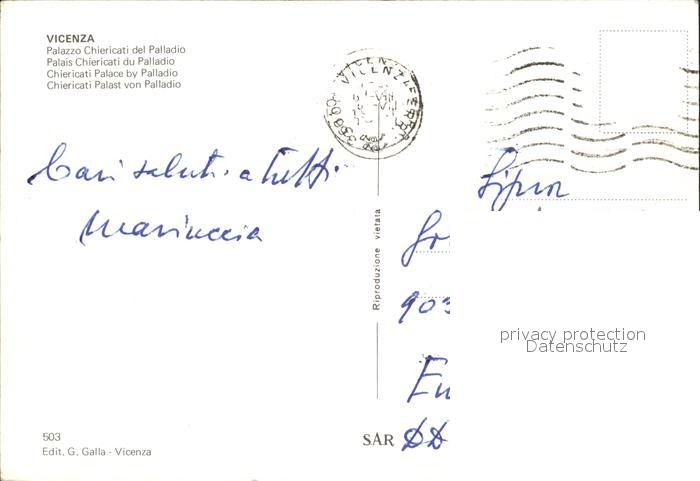 VICENZA
Palazzo Chiericati del Palladio
Palais Chiericati du Palladio
Chiericati Palace by Palladio
Chiericati Palast von Palladio
VICENZA FERROVIA
36000
Cari saluti a tutti
Mariuccia
Riproduzione vietata
903
SAR
privacy protection
Datenschutz
503
Edit. G. Galla - Vicenza